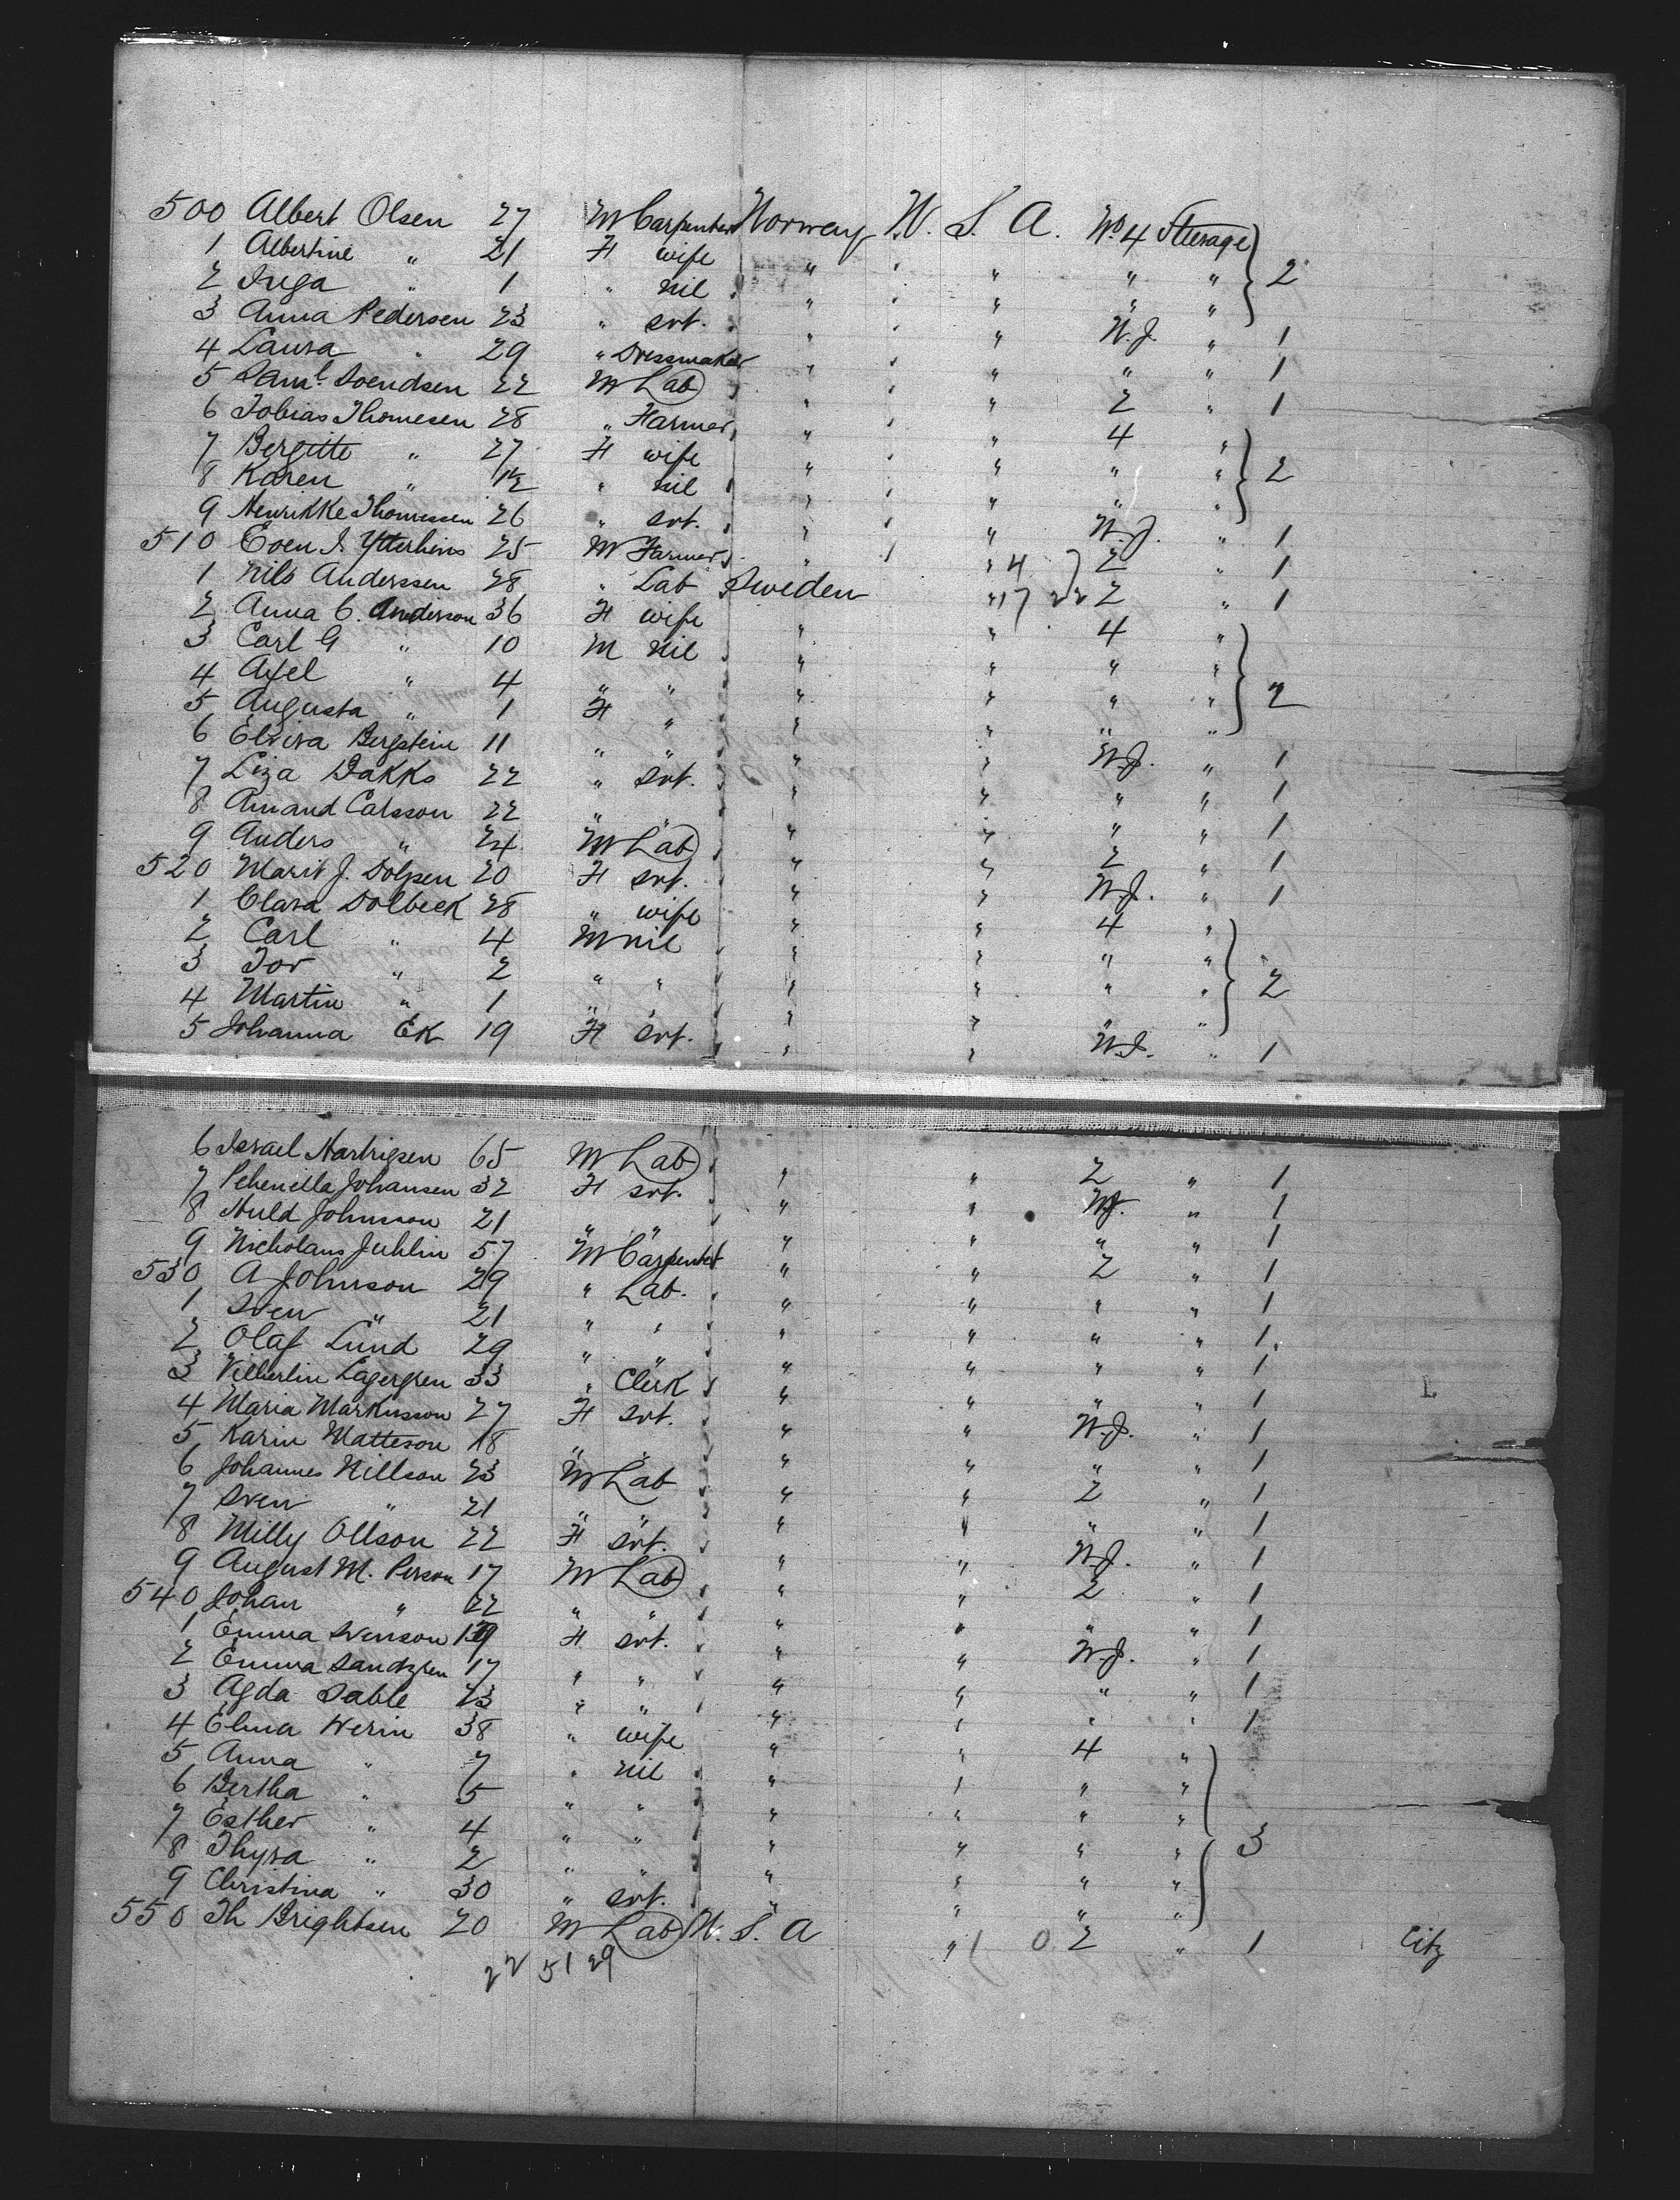 500 Albert Olsen 27 M Carpenter Norway U. S. A. No 4 Steerage
1 Albertine " 21 F wife " " " " 2
2 Inga " 1 " nil " " " "
3 Anna Pedersen 23 " svt. " " W.J. " 1
4 Laura " 29 " Dressmaker " " " " 1
5 Saml. Svendsen 22 M Lab " " 2 " 1
6 Tobias Thomesen 28 " Farmer " " 4 "
7 Bergitte " 27 F wife " " " " 2
8 Karen " 1½ " nil " " " "
9 Henrikke Thomessen 26 " svt. " " W.J. " 1
510 Even I. Ytterhins 25 M Farmer " " 4 2 " 1
1 Nils Anderssen 28 " Lab Sweden " 17 22 2 " 1
2 Anna C. Anderson 36 F wife " " 4 "
3 Carl G " 10 M nil " " " "
4 Axel " 4 " " " " " " 2
5 Augusta " 1 F " " " " "
6 Elvira Bergstein 11 " " " " W.J. " 1
7 Liza Dakks 22 " svt. " " " " 1
8 Amand Carlsson 22 " " " " " " 1
9 Anders " 24 M Lab " " 2 " 1
520 Marit J. 20 F svt. " " W.J. " 1
1 Clara Dolbeck 28 " wife " " 4 "
2 Carl " 4 M nil " " " "
3 Tor " 2 " " " " " " 2
4 Martin " 1 " " " " " "
5 Johanna Ek 19 F svt. " " W.J. " 1
6 Israel 65 M Lab " " 2 " 1
7 Johansen 32 F svt. " " W.J. " 1
8 Huld Johnsson 21 " " " " " " 1
9 Nicholaus Juhlin 57 M Carpenter " " 2 " 1
530 A Johnson 29 " Lab. " " " " 1
1 Sven " 21 " " " " " " 1
2 Olaf Lund 29 " " " " " " 1
3 Lagergren 33 " Clerk " " " " 1
4 Maria Markusson 27 F svt. " " W.J. " 1
5 Karin Matteson 18 " " " " " " 1
6 Johannes Nillson 23 M Lab " " 2 " 1
7 Sven " 21 " " " " " " 1
8 Milly Ollson 22 F svt. " " W.J. " 1
9 August M. Person 17 M Lab " " 2 " 1
540 Johan " 22 " " " " " " 1
1 Emma Svenson 19 F svt. " " W.J. " 1
2 Emma Sandgren 17 " " " " " " 1
3 Agda Sable 23 " " " " " " 1
4 Elma Werin 38 " wife " " 4 "
5 Anna " 7 " nil " " " "
6 Bertha " 5 " " " " " "
7 Esther " 4 " " " " " " 3
8 Thyra " 2 " " " " " "
9 Christina " 30 " svt. " " " "
550 Th Brightsen 20 M Lab U. S. A " 1 0 2 " 1 Citz
22 51 29